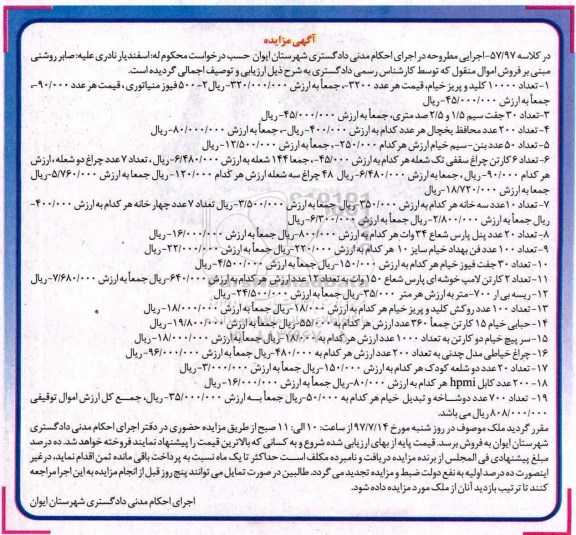 آگهی مزایده
در کلاسه ۵۷/۹۷-اجرایی مطروحه در اجرای احکام مدنی دادگستری شهرستان ایوان حسب درخواست محکوم له: اسفندیار نادری علیه: صابر روشنی
مبنی بر فروش اموال منقول که توسط کارشناس رسمی دادگستری به شرح ذیل ارزیابی و توصیف اجمالی گردیده است.
۱-تعداد ۱۰۰۰۰ کلید و پریز خیام، قیمت هر عدد ۳۲۰۰-، جمعاً به ارزش ۳۲۰/۰۰۰/۰۰۰-ریال ۲-۵۰۰ فیوز مینیاتوری، قیمت هر عدد ۹۰/۰۰۰-،
جمعاً به ارزش ۴۵/۰۰۰/۰۰۰-ریال
۳-تعداد ۳۰ جفت سیم ۱/۵ و ۲/۵ صد متری، جمعاً به ارزش ۴۵/۰۰۰/۰۰۰-ریال
۴-تعداد ۲۰۰ عدد محافظ یخچال هر عدد کدام به ارزش ۴۰۰/۰۰۰-ریال-، جمعاً به ارزش ۸۰/۰۰۰/۰۰۰-ریال
۵-تعداد ۵۰ عدد بنن-سیم خیام ارزش هر کدام ۲۵۰/۰۰۰-، جمعاً به ارزش ۱۲/۵۰۰/۰۰۰-ریال
۶-تعداد ۶ کارتن چراغ سقفی تک شعله هر کدام به ارزش ۴۵/۰۰۰-، جمعا ۱۴۴ شعله به ارزش ۶/۴۸۰/۰۰۰-ریال، تعداد ۷ عدد چراغ دو شعله، ارزش
هر کدام ۹۰/۰۰۰-ریال، جمعا به ارزش ۶/۴۸۰/۰۰۰-ریال ۴۸ چراغ سه شعله ارزش هر کدام ۱۲۰/۰۰۰-ریال جمعا به ارزش ۵/۷۶۰/۰۰۰-ریال
جمعا به ارزش ۱۸/۷۲۰/۰۰۰-ریال
۷-تعداد ۱۰ عدد سه خانه هر کدام به ارزش ۳۵۰/۰۰۰-ریال جمعا به ارزش ۳/۵۰۰/۰۰۰-ریال تعداد ۷ عدد چهار خانه هر کدام به ارزش ۴۰۰/۰۰۰-
ریال جمعاً به ارزش ۲/۸۰۰/۰۰۰-ریال جمعا به ارزش ۶/۳۰۰/۰۰۰-ریال
۸-تعداد ۲۰ عدد پنل پارس شعاع ۳۴ وات هر کدام به ارزش ۸۰۰/۰۰۰-ریال جمعاً به ارزش ۱۶/۰۰۰/۰۰۰-ریال
۹-تعداد ۱۰۰ عدد فن بهداد خیام سایز ۱۰ هر کدام به ارزش ۲۲۰/۰۰۰-ریال جمعاً به ارزش ۲۲/۰۰۰/۰۰۰-ریال
۱۰-تعداد ۳۰ جفت فیوز خیام هر کدام به ارزش ۱۵۰/۰۰۰-ریال جمعاً به ارزش ۴/۵۰۰/۰۰۰-ریال
۱۱-تعداد ۲ کارتن لامپ خوشه ای پارس شعاع ۱۵۰ وات به تعداد ۱۲ عدد ارزش هر کدام به ارزش ۶۴۰/۰۰۰-ریال جمعاً به ارزش ۷/۶۸۰/۰۰۰-ریال
۱۲-ریسه بی ار ۷۰۰-متر به ارزش هر متر ۳۵/۰۰۰-ریال جمعاً به ارزش ۲۴/۵۰۰/۰۰۰-ریال
۱۳-تعداد ۱۰۰ عدد روکش کلید و پریز خیام هر کدام به ارزش ۱۸/۰۰۰-ریال جمعاً به ارزش ۱۸/۰۰۰/۰۰۰-ریال
۱۴-حبابی خیام ۱۵ کارتن جمعاً ۳۶۰ عدد ارزش هر کدام به ۵۵/۰۰۰-ریال جمعاً به ارزش ۱۹/۸۰۰/۰۰۰-ریال
۱۵-سر پیچ خیام دو کارتن به تعداد ۱۰۰۰ عدد ارزش هر کدام به ۱۸/۰۰۰-ریال جمعاً به ارزش ۱۸/۰۰۰/۰۰۰-ریال
۱۶-چراغ خیاطی مدل چدنی به تعداد ۲۰۰ عدد ارزش هر کدام به ۴۸۰/۰۰۰-ریال جمعاً به ارزش ۹۶/۰۰۰/۰۰۰-ریال
۱۷-تعداد ۲۰ عدد دو شعله کودک هر کدام به ارزش ۱۵۰/۰۰۰-ریال جمعاً به ارزش ۳/۰۰۰/۰۰۰-ریال
۱۸-۲۰۰ عدد کابل hpmi هر کدام به ارزش ۸۰/۰۰۰-ریال جمعاً به ارزش ۱۶/۰۰۰/۰۰۰-ریال
۱۹-تعداد ۷۰۰ عدد دوشاخه و تبدیل خیام هر کدام به ۵۰/۰۰۰-ریال جمعاً به ارزش ۳۵/۰۰۰/۰۰۰-ریال، جمع کل ارزش اموال توقیفی
۸۰۸/۰۰۰/۰۰۰ ریال می باشد.
مقرر گردید ملک موصوف در روز شنبه مورخ ۹۷/۷/۱۴ از ساعت: ۱۰ الی: ۱۱ صبح از طریق مزایده حضوری در دفتر اجرای احکام مدنی دادگستری
شهرستان ایوان به فروش برسد. قیمت پایه از بهای ارزیابی شده شروع و به کسانی که بالاترین قیمت را پیشنهاد نمایند فروخته خواهد شد. ده درصد
مبلغ پیشنهادی فی المجلس از برنده مزایده دریافت و نامبرده مکلف است حداکثر تا یک ماه نسبت به پرداخت باقی مانده ثمن اقدام نماید، در غیر
اینصورت ده درصد اولیه به نفع دولت ضبط و مزایده تجدید می گردد. طالبین در صورت تمایل می توانند پنج روز قبل از انجام مزایده به این اجرا مراجعه
کنند تا ترتیب بازدید آنان از ملک مورد مزایده داده شود.
اجرای احکام مدنی دادگستری شهرستان ایوان